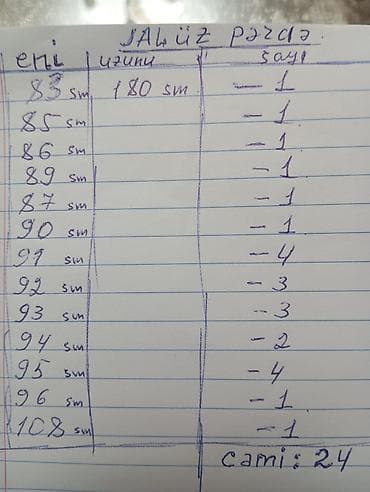 JALÜZ PƏRDƏ
eni uzunu sayı
83 sm 180 sm - 1
85 sm - 1
86 sm - 1
89 sm - 1
87 sm - 1
90 sm - 1
91 sm - 4
92 sm - 3
93 sm - 3
94 sm - 2
95 sm - 4
96 sm - 1
108 sm - 1
cəmi: 24